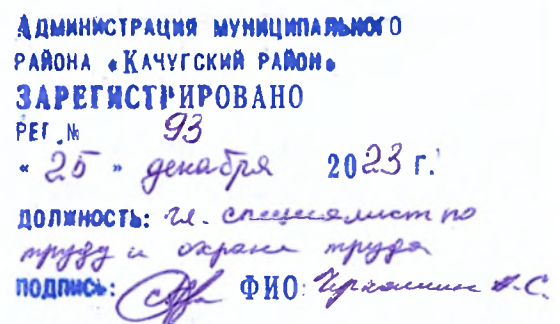 Администрация муниципального
района «Качугский район»
ЗАРЕГИСТРИРОВАНО
РЕГ.№ 93
« 25 » декабря 2023 г.
ДОЛЖНОСТЬ: гл. специалист по
труду и охране труда
ПОДПИСЬ: ФИО: